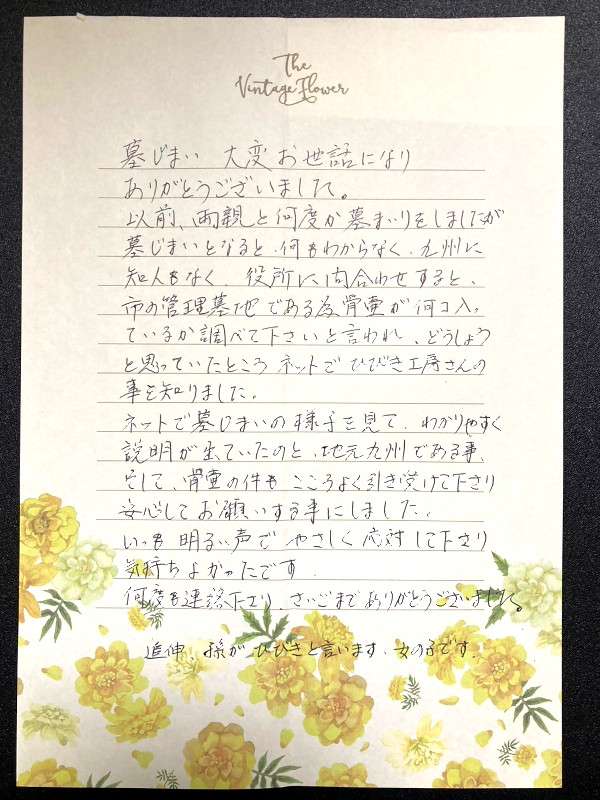 The
Vintage Flower
墓じまい 大変お世話になり
ありがとうございました。
以前、両親と何度か墓まいりをしましたが
墓じまいとなると、何もわからなく、九州に
知人もなく、役所に問合わせすると、
市の管理墓地である為骨壷が何コ入っ
ているか調べて下さいと言われ、どうしょう
と思っていたところ ネットで ひびき工房さんの
事を知りました。
ネットで墓じまいの様子を見て、わかりやすく
説明が出ていたのと、地元九州である事、
そして、骨壷の件も こころよく引き受けて下さり
安心してお願いする事にしました。
いつも 明るい声で やさしく 応対して下さり
気持ちよかったです.
何度も連絡下さり、さいごまでありがとうございました。
追伸 孫が ひびきと言います、女の子です.